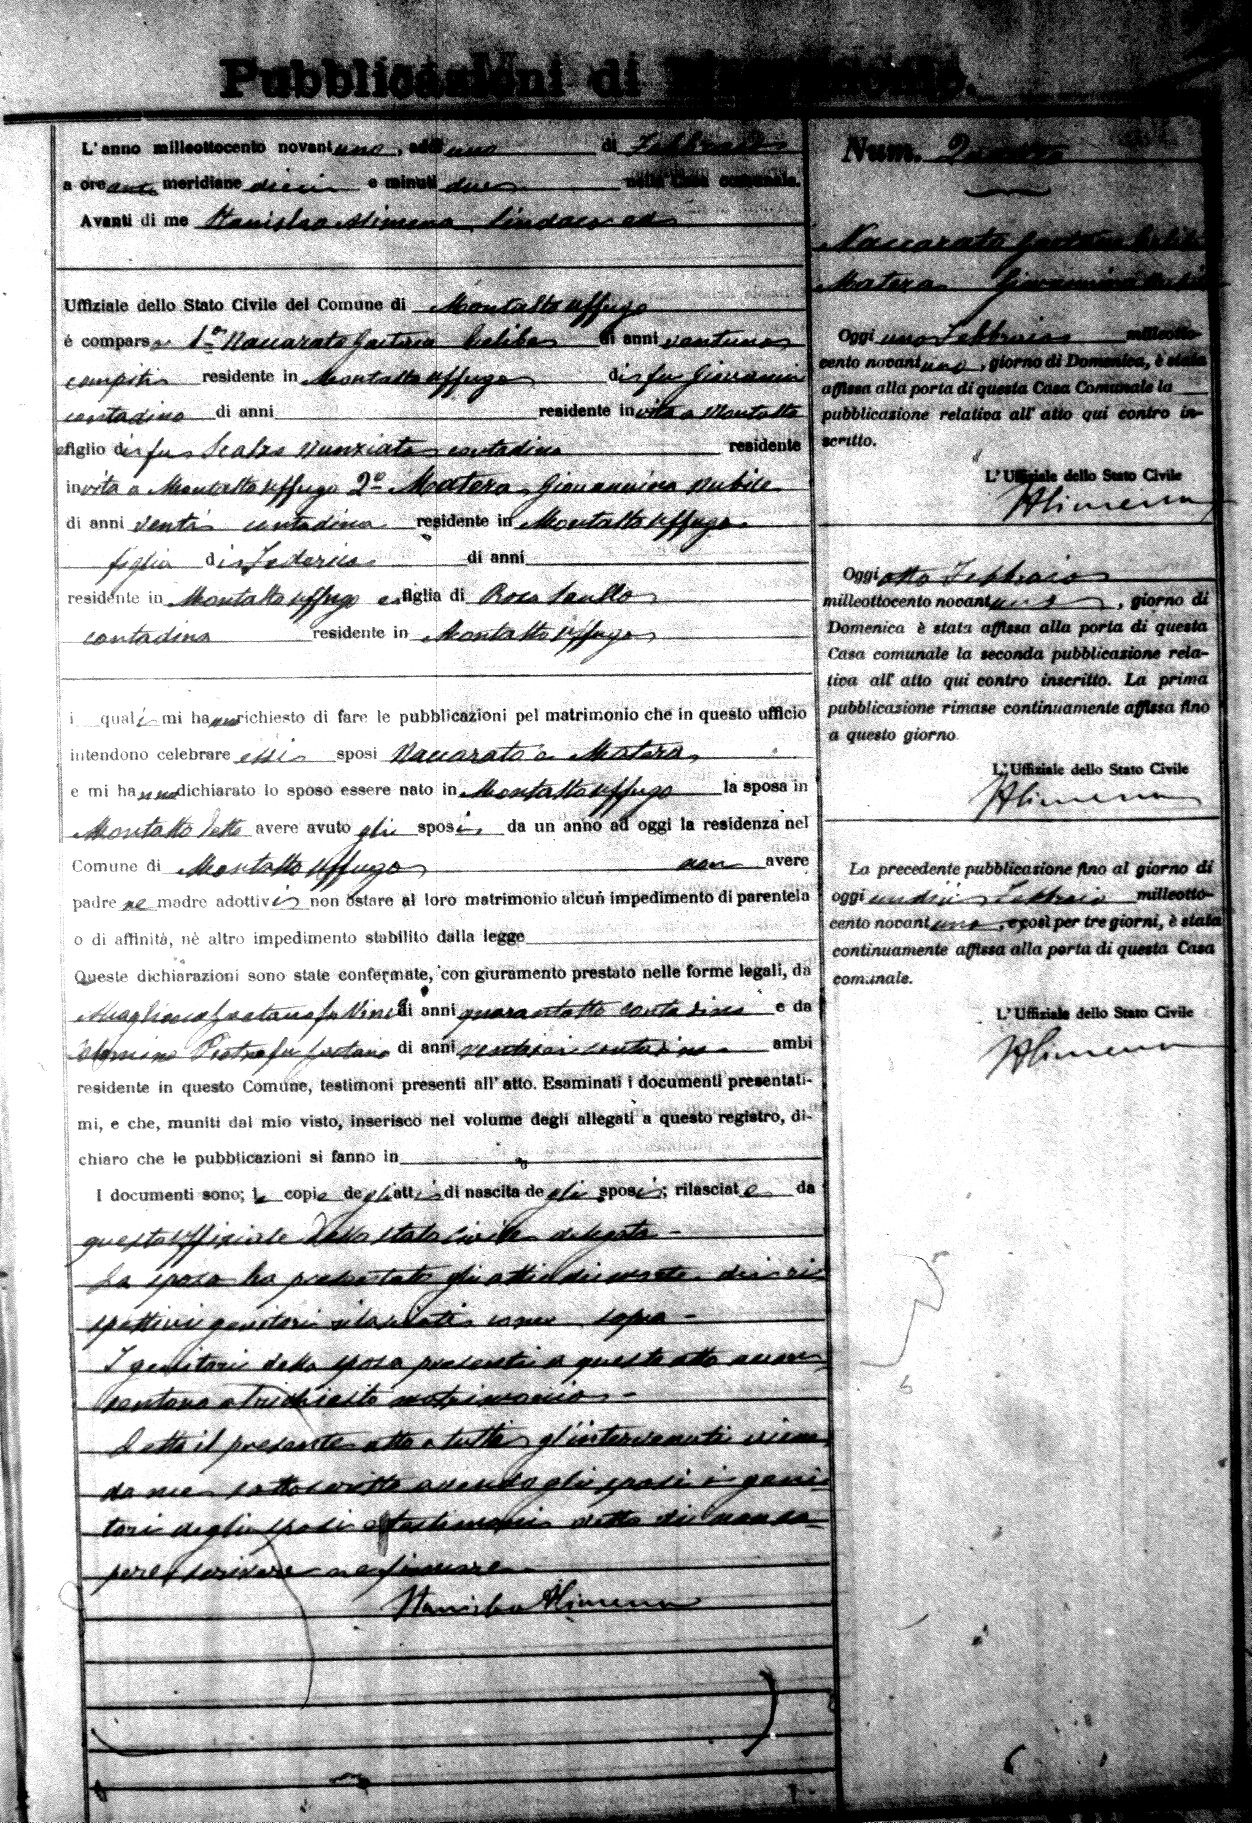 Pubblicazioni di Matrimonio.
L'anno milleottocento novantuno, addì uno di Febbraio
a ore ante meridiane dieci e minuti due nella Casa comunale.
Avanti di me Stanislao Alimena Sindaco ed
Uffiziale dello Stato Civile del Comune di Montalto Uffugo
è comparso 1º Naccarato Gaetano Celibe di anni ventuno
compiti residente in Montalto Uffugo di fu Giovanni
contadino di anni residente in vita a Montalto
e figlio di fu Scalzo Nunziata contadina residente
in vita a Montalto Uffugo 2º Matera Giovannina Nubile
di anni venti contadina residente in Montalto Uffugo
figlia di Federico di anni
residente in Montalto Uffugo e figlia di Rosa
contadina residente in Montalto Uffugo
i quali mi hanno richiesto di fare le pubblicazioni pel matrimonio che in questo ufficio
intendono celebrare essi sposi Naccarato e Matera
e mi hanno dichiarato lo sposo essere nato in Montalto Uffugo la sposa in
Montalto detto avere avuto gli sposi da un anno ad oggi la residenza nel
Comune di Montalto Uffugo non avere
padre ne madre adottivi non ostare al loro matrimonio alcun impedimento di parentela
o di affinità, nè altro impedimento stabilito dalla legge
Queste dichiarazioni sono state confermate, con giuramento prestato nelle forme legali, da
di anni quarantotto contadino e da
Pietro fu Gaetano di anni contadino ambi
residente in questo Comune, testimoni presenti all'atto. Esaminati i documenti presentati-
mi, e che, muniti dal mio visto, inserisco nel volume degli allegati a questo registro, di-
chiaro che le pubblicazioni si fanno in
I documenti sono; le copie degli atti di nascita degli sposi; rilasciate da
questo Uffiziale dello Stato Civile delegato -
La sposa ha presentato gli atti di morte dei ri
spettivi genitori rilasciati come sopra -
I genitori della sposa presenti a questo atto accon
sentono al richiesto matrimonio -
Letto il presente atto a tutti gl'intervenuti viene
da me sottoscritto avendo gli sposi i geni
tori degli sposi e testimoni detto di non sa-
pere scrivere ne firmare
Stanislao Alimena
Num. Quattro
Naccarato Gaetano Celibe
Matera Giovannina Nubile
Oggi uno Febbraio milleotto-
cento novantuno, giorno di Domenica, è stata
affissa alla porta di questa Casa Comunale la
pubblicazione relativa all'atto qui contro in-
scritto.
L'Uffiziale dello Stato Civile
SAlimena
Oggi otto Febbraio
milleottocento novantuno, giorno di
Domenica è stata affissa alla porta di questa
Casa comunale la seconda pubblicazione rela-
tiva all'atto qui contro inscritto. La prima
pubblicazione rimase continuamente affissa fino
a questo giorno
L'Uffiziale dello Stato Civile
SAlimena
La precedente pubblicazione fino al giorno di
oggi undici Febbraio milleotto-
cento novantuno, e così per tre giorni, è stata
continuamente affissa alla porta di questa Casa
comunale.
L'Uffiziale dello Stato Civile
SAlimena